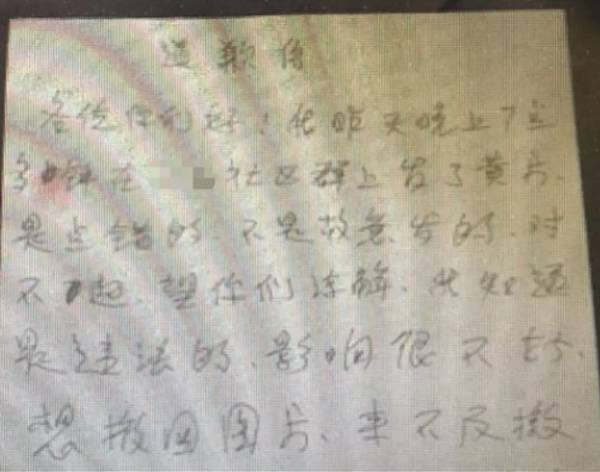 道歉信
各位你们好！我昨天晚上7点
多钟在 社区群上发了黄片、
是点错的、不是故意发的、对
不起、望你们谅解、我知道
是违法的、影响很不好、
想撤回图片、来不及撤